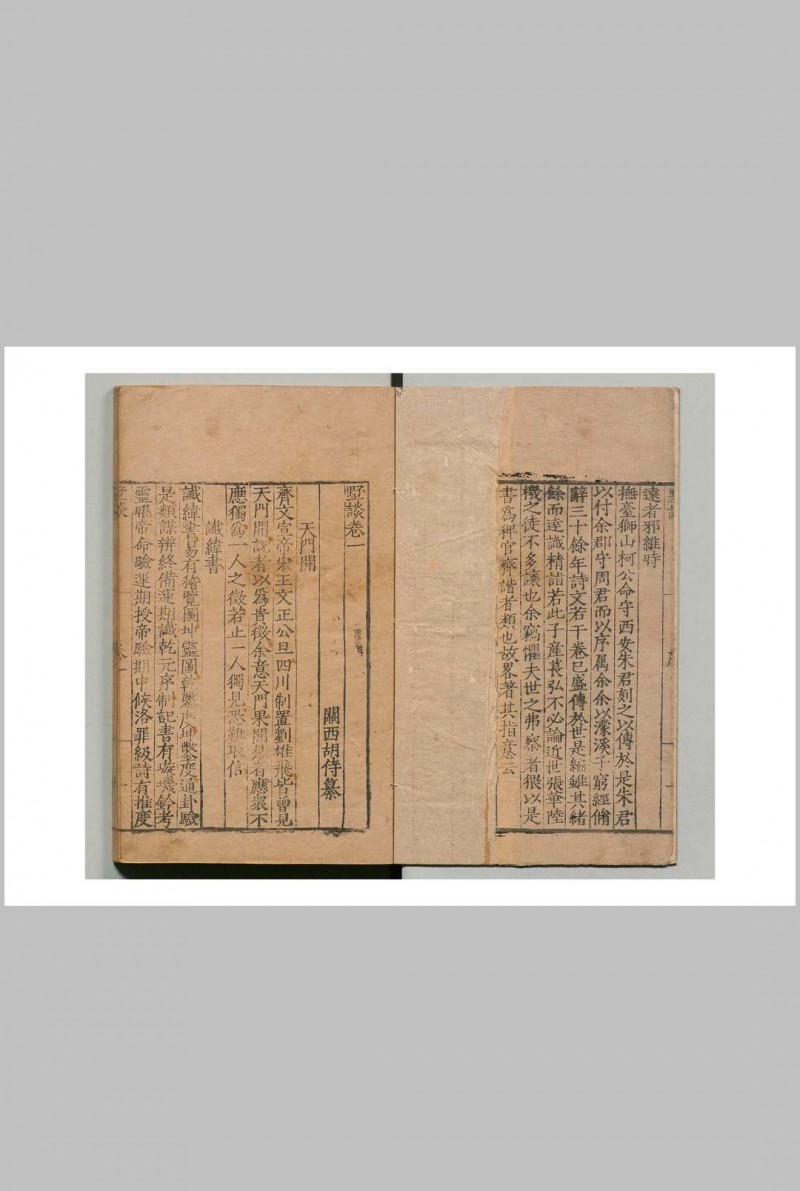 遠者邪維時
撫臺獅山柯公命守西安朱君刻之以傳於是朱君
以付余郡守周君而以序属余余以濛溪子窮經脩
辭三十餘年詩文若干卷已盛傳於世是編雖其緒
餘而邃識精詣若此子産萇弘不必論近世張華陸
機之徒不多讓也余竊懼夫世之弗察者猥以是
書爲稗官齊諧者類也故畧著其指意云
墅談卷一
關西胡侍纂
天門開
齊文宣帝宋王文正公旦四川制置劉雄飛皆曾見
天門開説者以爲貴徵余意天門果開見者應衆不
應獨爲一人之徵若止一人獨見恐難取信
讖緯書
讖緯書易有稽覽圖坤靈圖乾鑿度通卦驗
是類謀辨終備運期讖乾元序制記書有璇璣鈐考
靈曜帝命驗運期授帝驗期中候洛罪級詩有推度
墅談
卷一